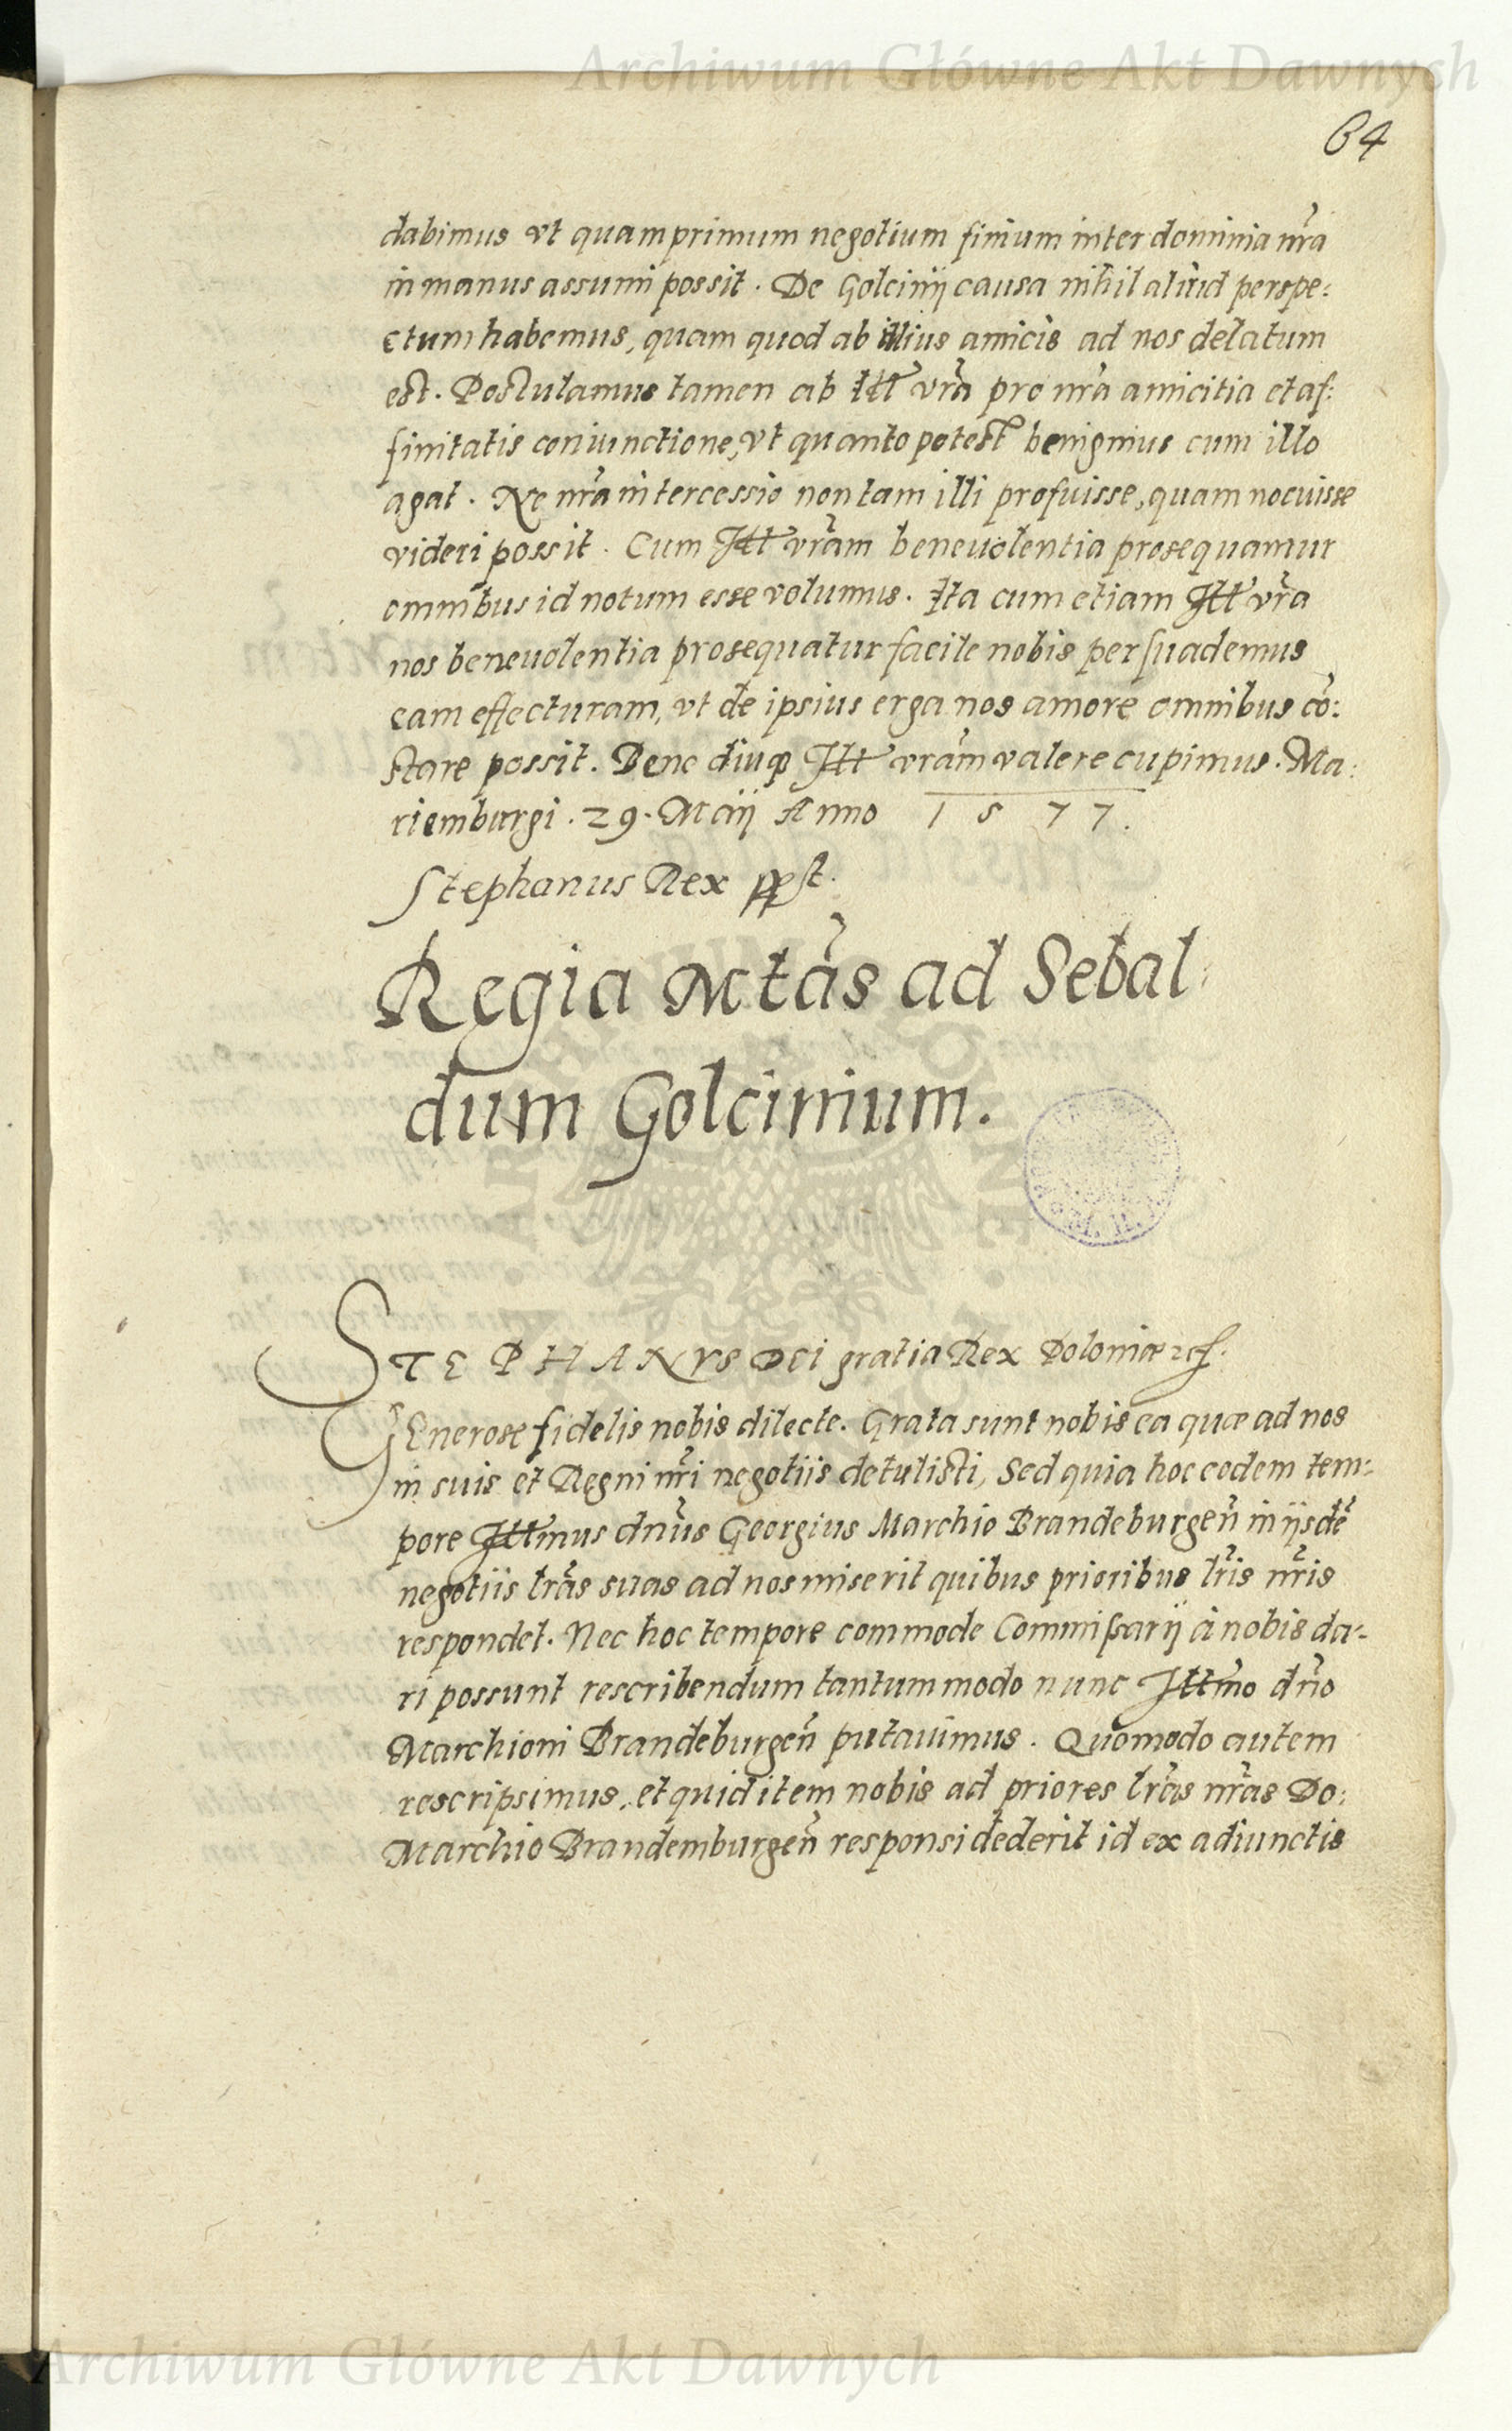 Archiwum Główne Akt Dawnych
64
dabimus vt quamprimum negotium finium inter dominia nr̃a
in manus assumi possit. De Golcinij causa nihil aliud perspe:
ctum habemus, quam quod ab illius amicis ad nos delatum
est. Postulamus tamen ab Ill vr̃a pro nr̃a amicitia et af:
finitatis coniunctione, vt quanto potest benignius cum illo
agat. Ne nr̃a intercessio non tam illi profuisse, quam nocuisse
videri possit. Cum Ill vr̃am beneuolentia prosequamur
omnibus id notum esse volumus. Ita cum etiam Ill vr̃a
nos beneuolentia prosequatur facile nobis persuademus
eam effecturam, vt de ipsius erga nos amore omnibus cõ:
stare possit. Bene diuq̃ Ill vr̃am valere cupimus. Ma:
riemburgi. 29. Maij Anno 1577.
Stephanus Rex ppst.
Regia Mtãs ad Sebal:
dum Golcinium.
STEPHANVS Dei gratia Rex Poloniæ etc.
GEnerose fidelis nobis dilecte. Grata sunt nobis ea quæ ad nos
in suis et Regni nr̃i negotiis detulisti, Sed quia hoc eodem tem:
pore Illmus dnũs Georgius Marchio Brandeburgeñ in ijsdẽ
negotiis lr̃as suas ad nos miserit quibus prioribus lr̃is nr̃is
respondet. Nec hoc tempore commode Commissarij à nobis da:
ri possunt rescribendum tantummodo nunc Illm̃o dño
Marchioni Brandeburgeñ putauimus. Quomodo autem
rescripsimus, et quid item nobis ad priores lr̃as nr̃as Do:
Marchio Brandemburgeñ responsi dederit id ex adiunctis
Archiwum Główne Akt Dawnych